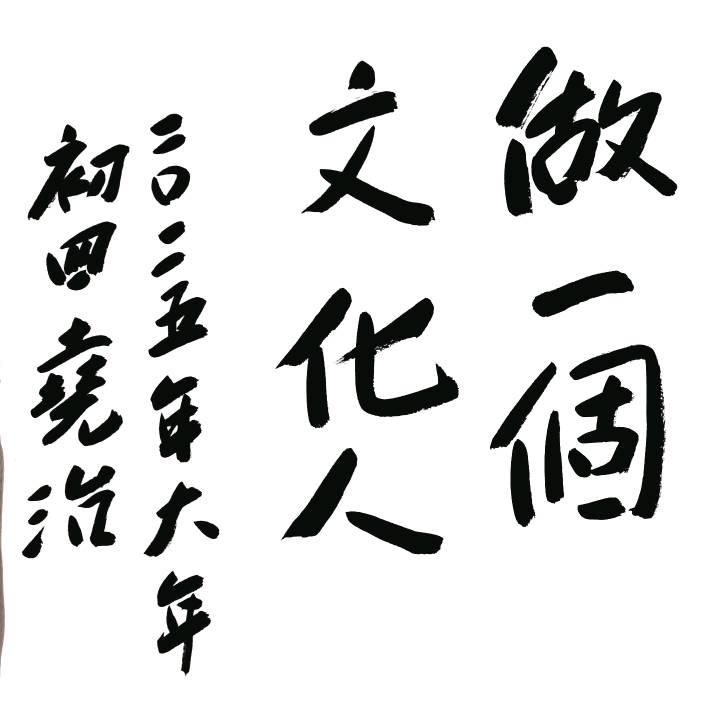 做一個
文化人
二〇二五年大年
初四堯治